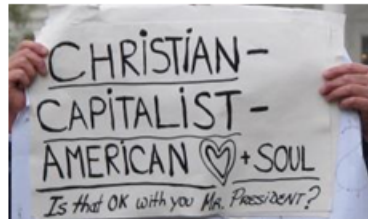 CHRISTIAN-
CAPITALIST-
AMERICAN ♡ + SOUL
Is that OK with you MR. PRESIDENT?